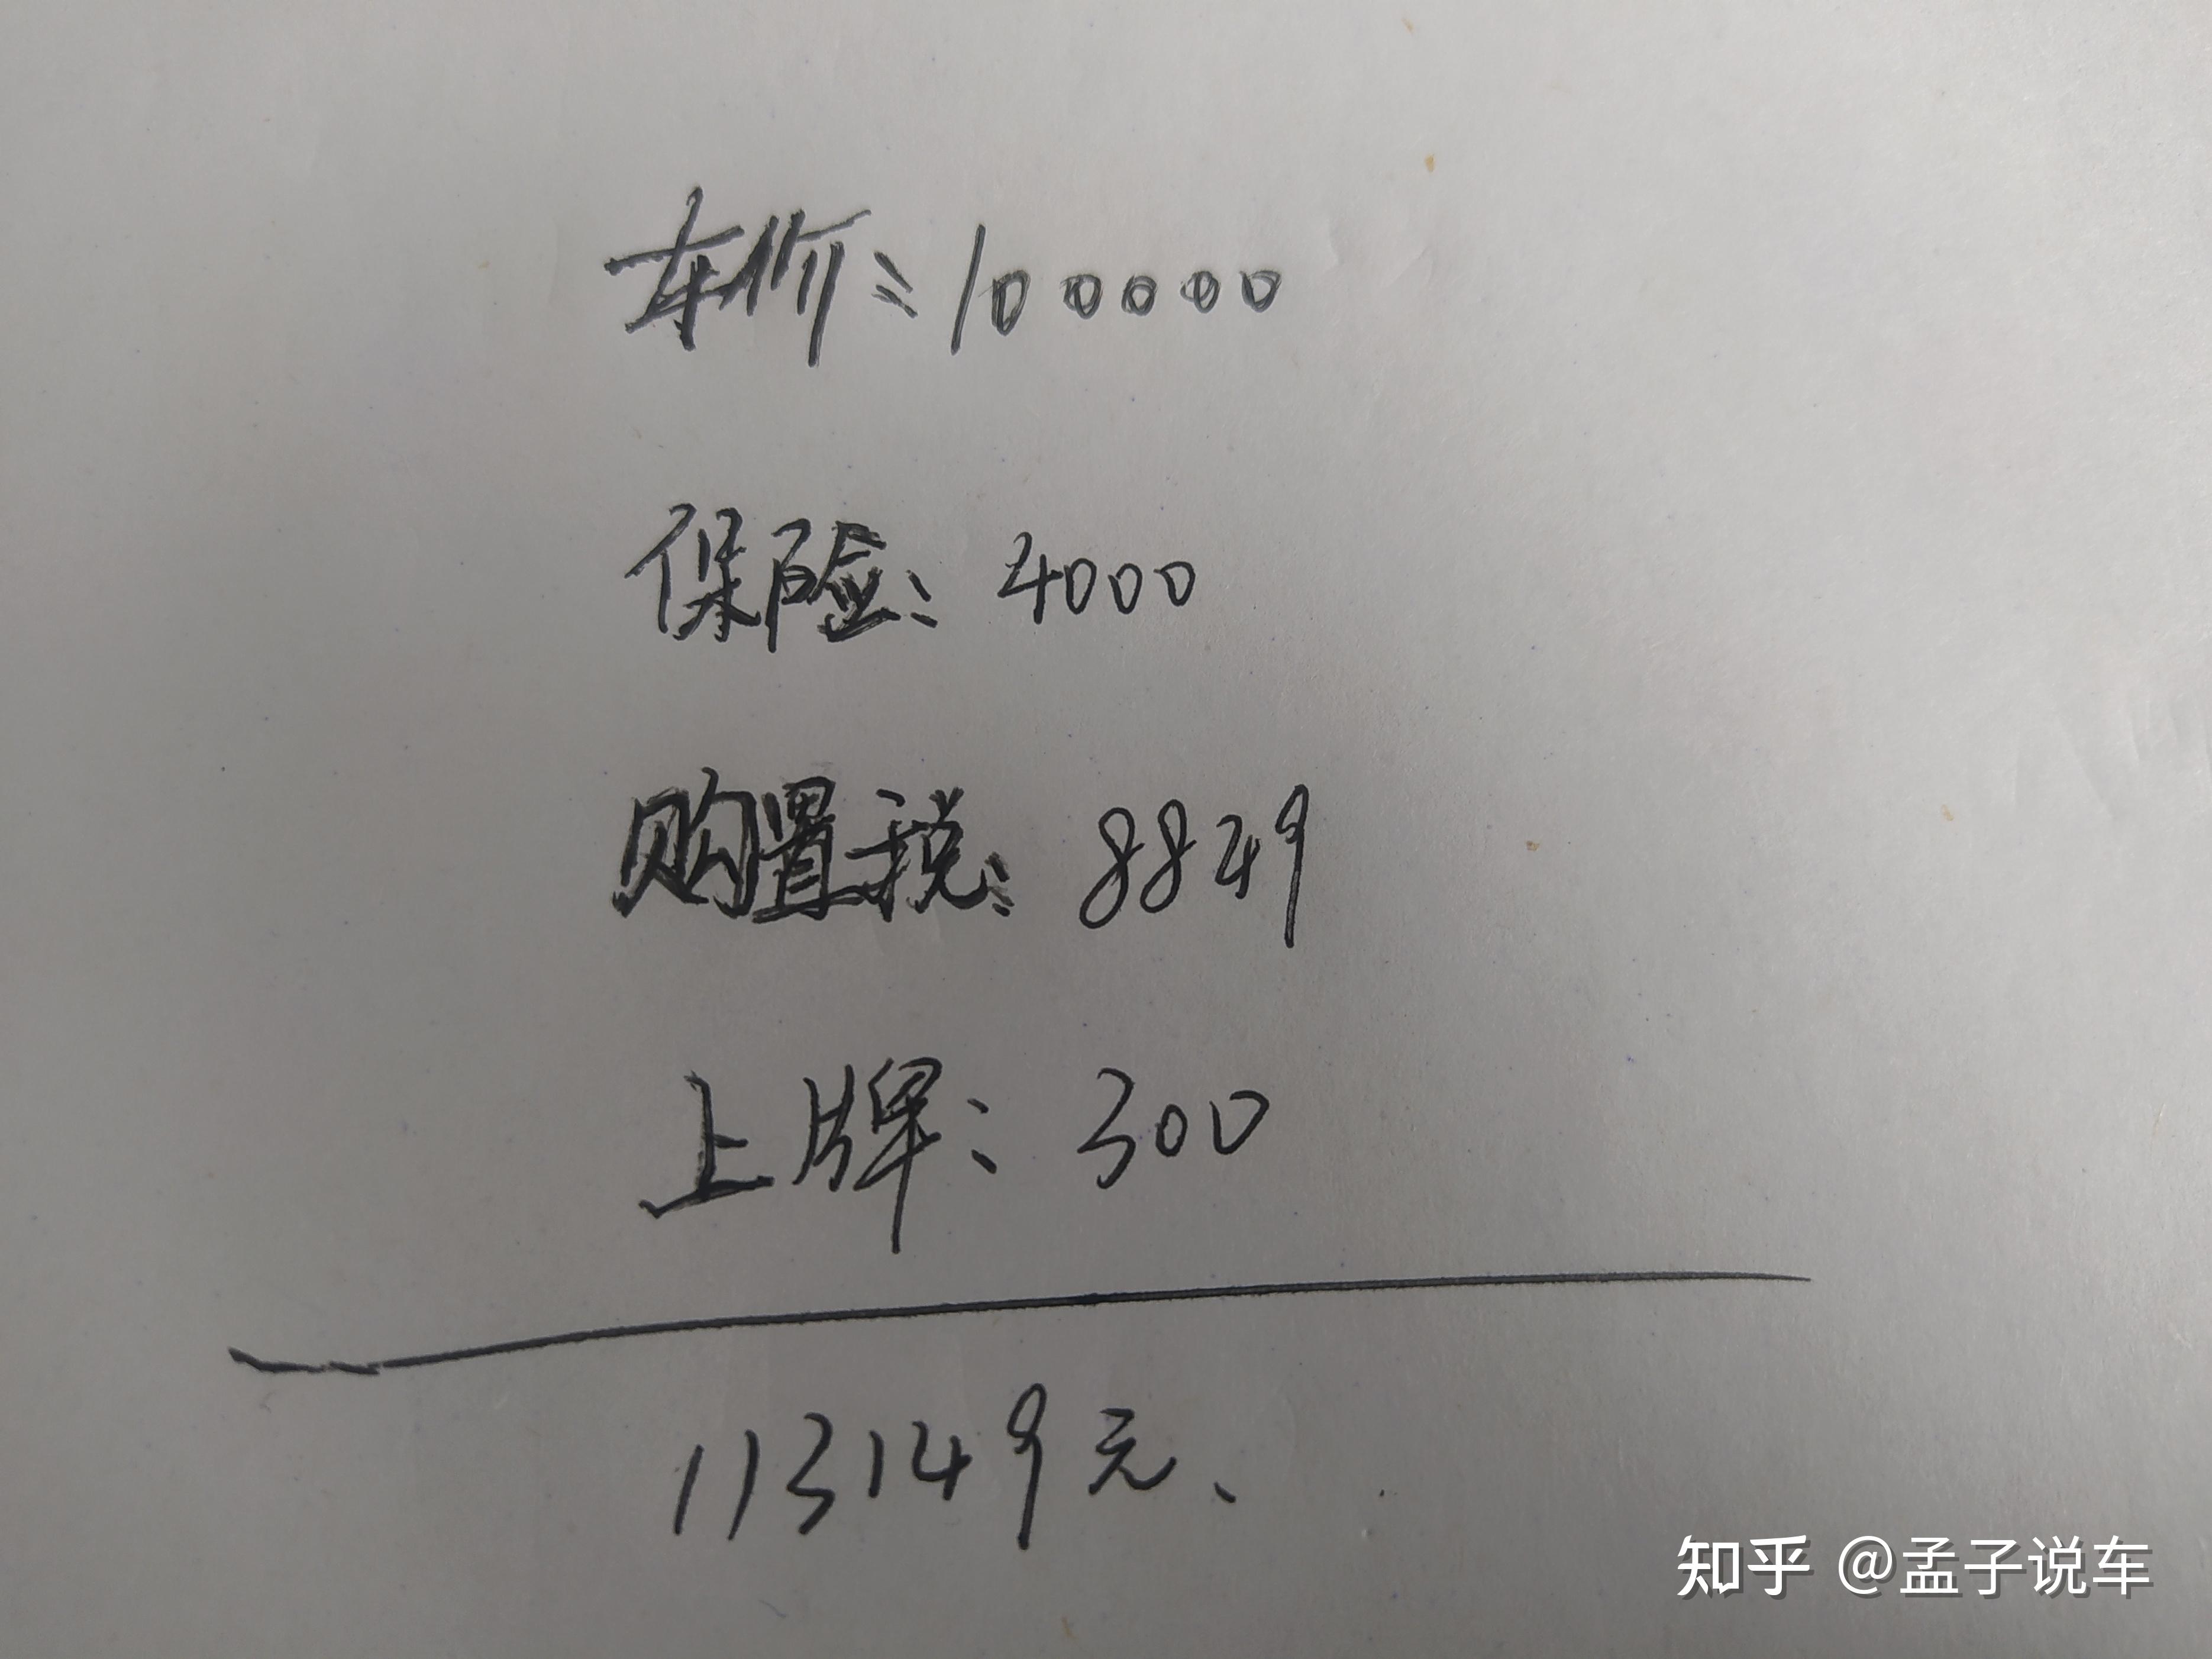 车价：100000
保险：4000
购置税：8849
上牌：300
113149元、
知乎 @孟子说车